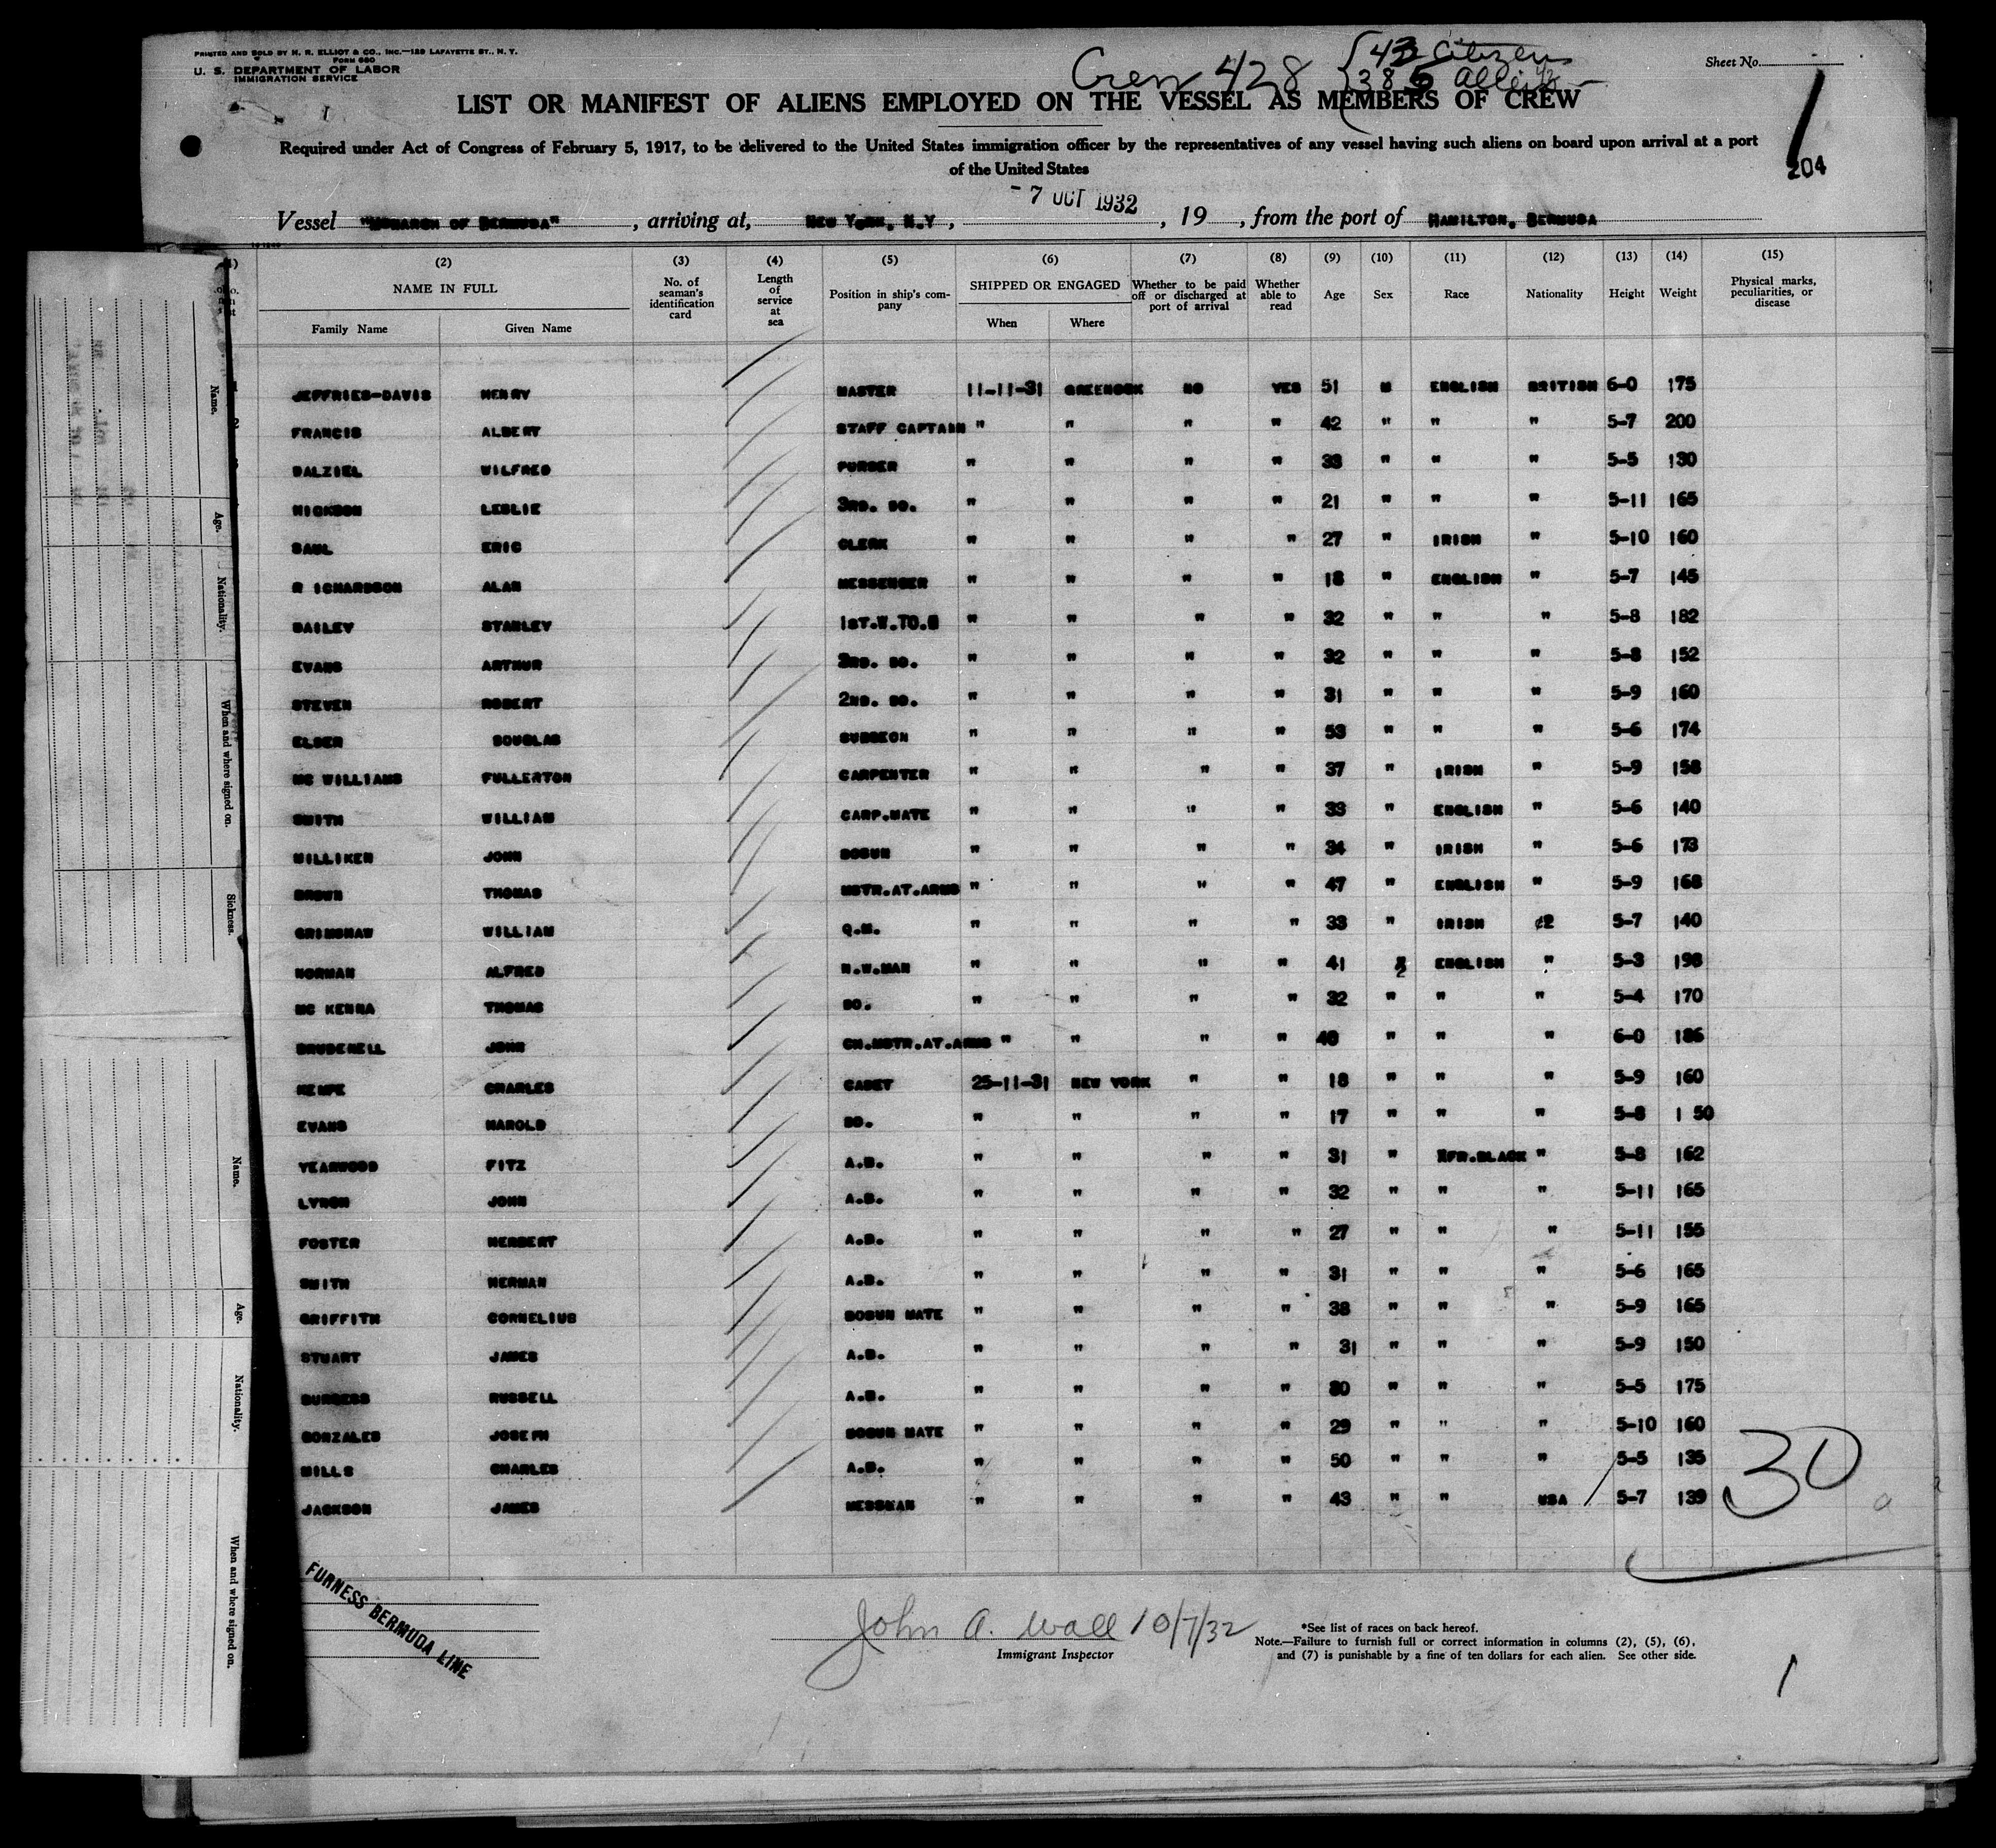 PRINTED AND SOLD BY H. R. ELLIOT & CO., INC.—129 LAFAYETTE ST., N. Y.
FORM 680
U. S. DEPARTMENT OF LABOR
IMMIGRATION SERVICE
Crew 428 43 Citizens
385 Aliens
Sheet No.
1
LIST OR MANIFEST OF ALIENS EMPLOYED ON THE VESSEL AS MEMBERS OF CREW
Required under Act of Congress of February 5, 1917, to be delivered to the United States immigration officer by the representatives of any vessel having such aliens on board upon arrival at a port
of the United States
204
- 7 OCT 1932
Vessel "MONARCH OF BERMUDA", arriving at, NEW YORK, N.Y, , 19 , from the port of HAMILTON, BERMUDA
(2) (3) (4) (5) (6) (7) (8) (9) (10) (11) (12) (13) (14) (15)
NAME IN FULL No. of seaman's identification card Length of service at sea Position in ship's company SHIPPED OR ENGAGED Whether to be paid off or discharged at port of arrival Whether able to read Age Sex Race Nationality Height Weight Physical marks, peculiarities, or disease
Family Name Given Name When Where
JEFFRIES-DAVIS HENRY MASTER 11-11-31 GREENOCK NO YES 51 M ENGLISH BRITISH 6-0 175
FRANCIS ALBERT STAFF CAPTAIN " " " " 42 " " " 5-7 200
DALZIEL WILFRED PURSER " " " " 33 " " " 5-5 130
HICKSON LESLIE 3RD. DO. " " " " 21 " " " 5-11 165
SAUL ERIC CLERK " " " " 27 " IRISH " 5-10 160
R ICHARDSON ALAN MESSENGER " " " " 18 " ENGLISH " 5-7 145
BAILEY STANLEY 1ST.W.TO.O " " " " 32 " " " 5-8 182
EVANS ARTHUR 3RD. DO. " " " " 32 " " " 5-8 152
STEVEN ROBERT 2ND. DO. " " " " 31 " " " 5-9 160
ELDER DOUGLAS SURGEON " " " " 53 " " " 5-6 174
MC WILLIAMS FULLERTON CARPENTER " " " " 37 " IRISH " 5-9 158
SMITH WILLIAM CARP.MATE " " " " 33 " ENGLISH " 5-6 140
MILLIKEN JOHN BOSUN " " " " 34 " IRISH " 5-6 173
BROWN THOMAS MSTR.AT.ARMS " " " " 47 " ENGLISH " 5-9 168
GRIMSHAW WILLIAM Q.M. " " " " 33 " IRISH 5-7 140
NORMAN ALFRED N.W.MAN " " " " 41 ENGLISH " 5-3 198
MC KENNA THOMAS DO. " " " " 32 " " " 5-4 170
BRUDENELL JOHN CH.MSTR.AT.ARMS " " " " 40 " " " 6-0 186
KEMPE CHARLES CADET 25-11-31 NEW YORK " " 18 " " " 5-9 160
EVANS HAROLD DO. " " " " 17 " " " 5-8 1 50
YEARWOOD FITZ A.B. " " " " 31 " AFR.BLACK " 5-8 162
LYNCH JOHN A.B. " " " " 32 " " " 5-11 165
FOSTER HERBERT A.B. " " " " 27 " " " 5-11 155
SMITH HERMAN A.B. " " " " 31 " " " 5-6 165
GRIFFITH CORNELIUS BOSUN MATE " " " " 38 " " " 5-9 165
STUART JAMES A.B. " " " " 31 " " " 5-9 150
BURGESS RUSSELL A.B. " " " " 30 " " " 5-5 175
GONZALES JOSEPH BOSUN MATE " " " " 29 " " " 5-10 160
MILLS CHARLES A.B. " " " " 50 " " " 5-5 135
JACKSON JAMES MESSMAN " " " " 43 " " USA 5-7 139
30
FURNESS BERMUDA LINE
John A. Wall 10/7/32
Immigrant Inspector
*See list of races on back hereof.
Note.—Failure to furnish full or correct information in columns (2), (5), (6),
and (7) is punishable by a fine of ten dollars for each alien. See other side.
1
Name.
Age.
Nationality.
When and where signed on.
Sickness.
Name.
Age.
Nationality.
When and where signed on.